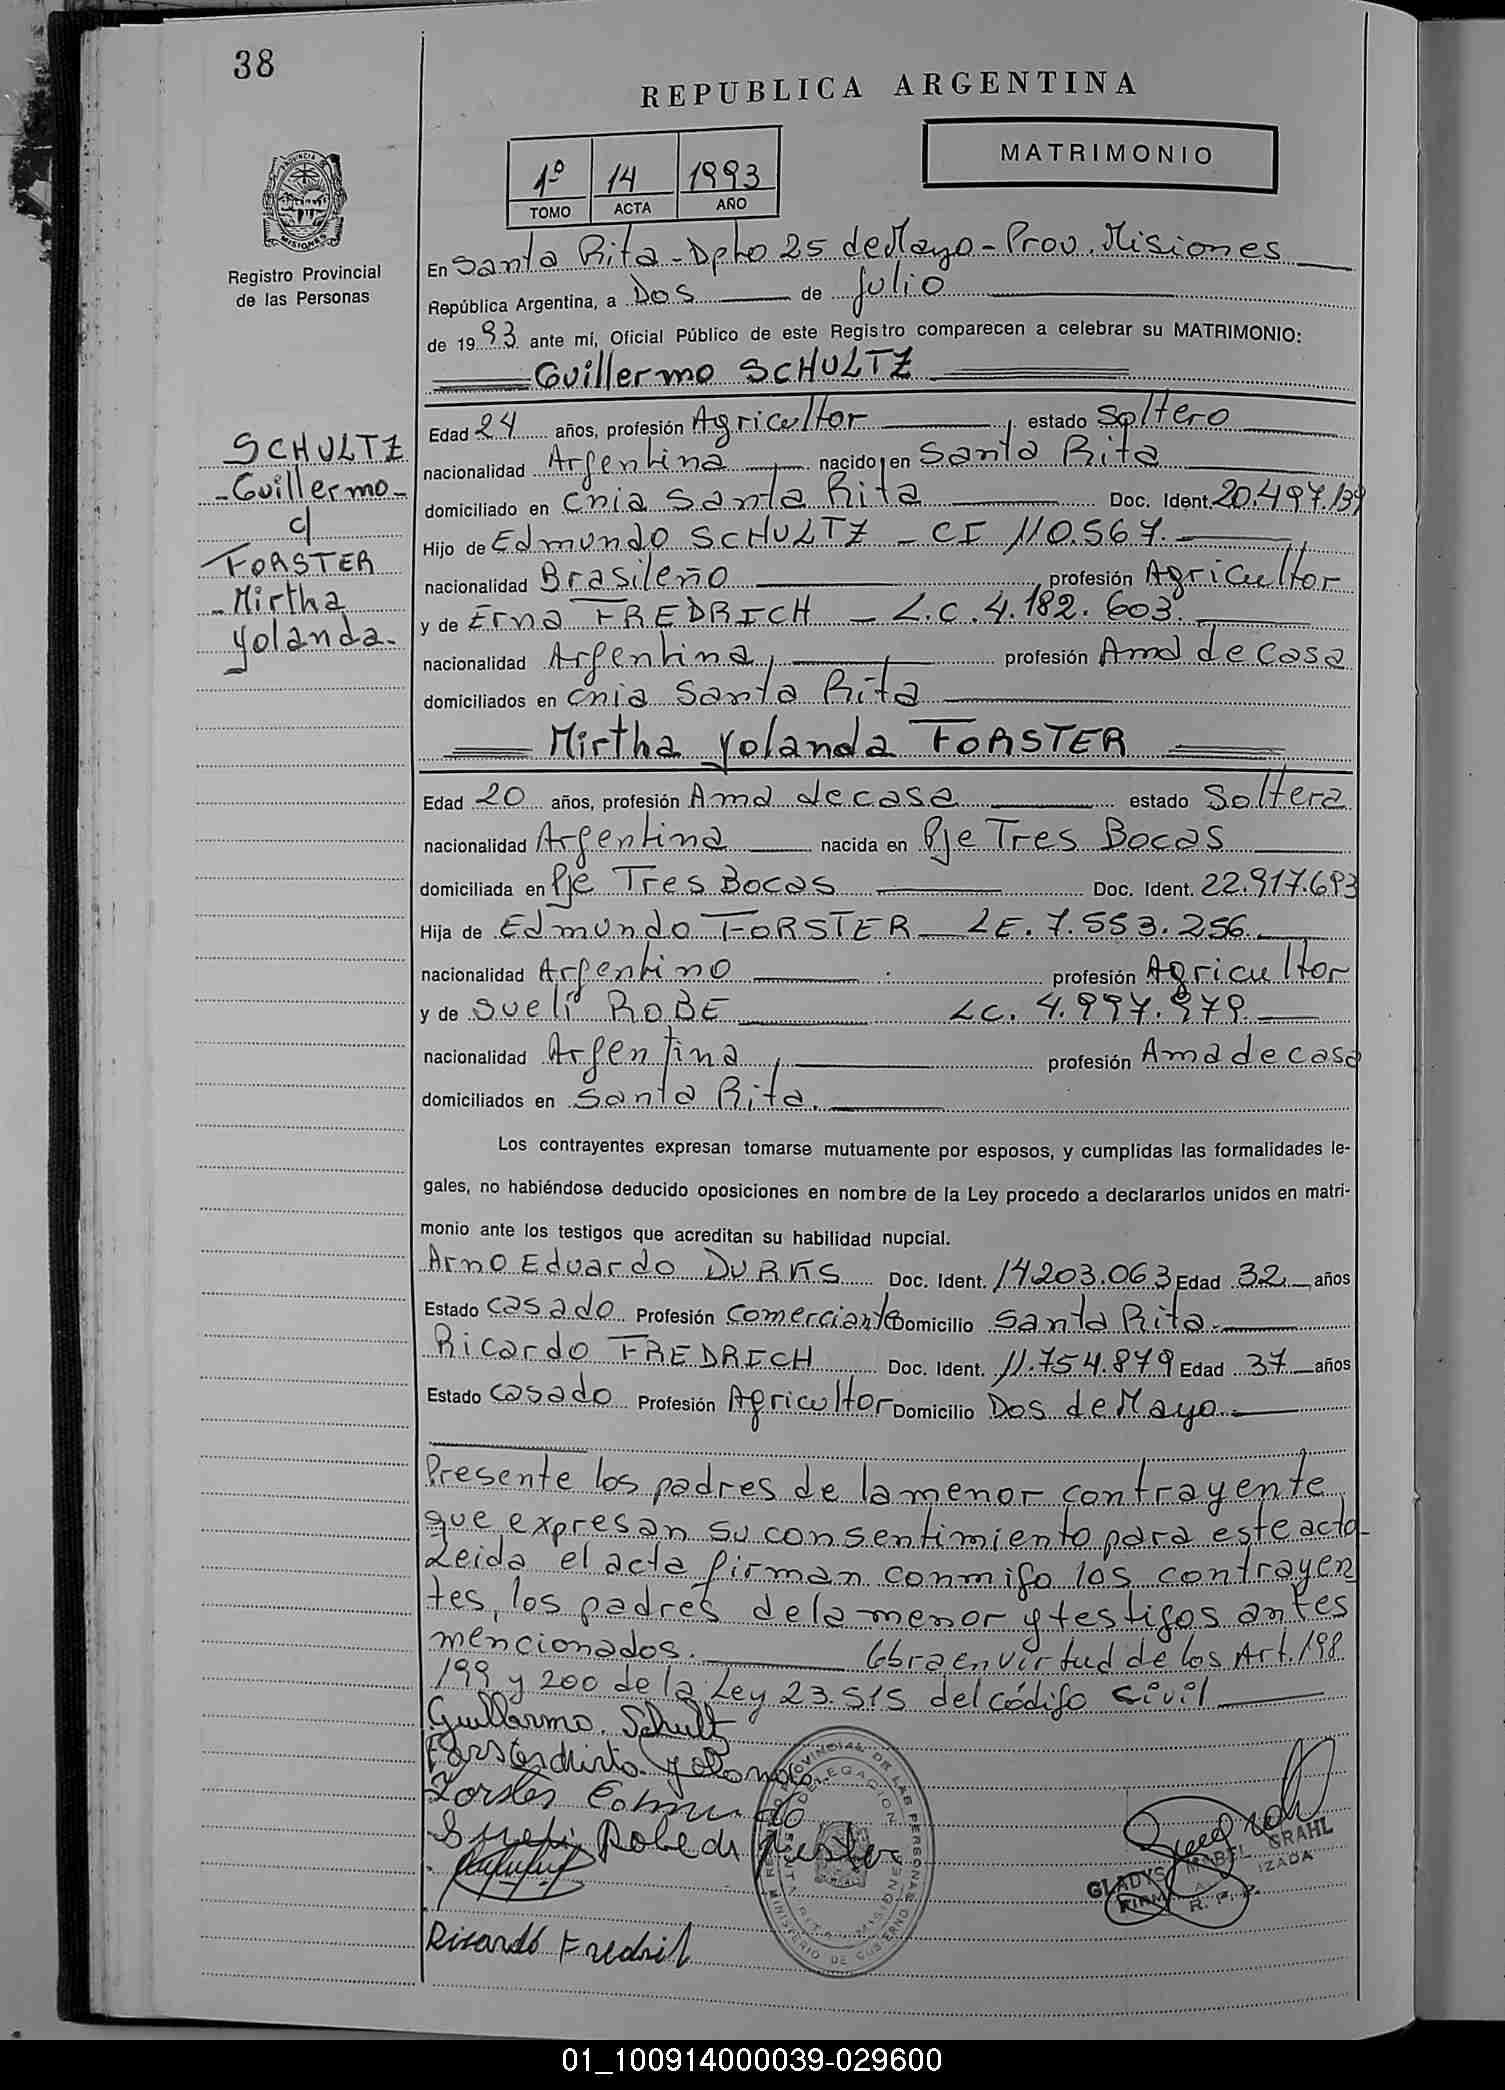 38
REPUBLICA ARGENTINA
MATRIMONIO
1º 14 1993
TOMO ACTA AÑO
PROVINCIA DE MISIONES
Registro Provincial
de las Personas
En Santa Rita - Dpto 25 de Mayo - Prov. Misiones
República Argentina, a Dos de Julio
de 1993 ante mí, Oficial Público de este Registro comparecen a celebrar su MATRIMONIO:
Guillermo SCHULTZ
SCHULTZ
- Guillermo -
c/
FORSTER
- Mirtha
Yolanda.-
Edad 24 años, profesión Agricultor estado Soltero
nacionalidad Argentina nacido en Santa Rita
domiciliado en Cnia Santa Rita Doc. Ident. 20.497.139
Hijo de Edmundo SCHULTZ - CI 110.567.
nacionalidad Brasileño profesión Agricultor
y de Erna FREDRICH - L.C. 4.182.603.
nacionalidad Argentina profesión Ama de casa
domiciliados en Cnia Santa Rita
Mirtha Yolanda FORSTER
Edad 20 años, profesión Ama de casa estado Soltera
nacionalidad Argentina nacida en Pje Tres Bocas
domiciliada en Pje Tres Bocas Doc. Ident. 22.917.693
Hija de Edmundo FORSTER LE. 7.553.256.
nacionalidad Argentino profesión Agricultor
y de Sueli ROBE LC. 4.997.979.
nacionalidad Argentina profesión Ama de casa
domiciliados en Santa Rita.
Los contrayentes expresan tomarse mutuamente por esposos, y cumplidas las formalidades le-
gales, no habiéndose deducido oposiciones en nombre de la Ley procedo a declararlos unidos en matri-
monio ante los testigos que acreditan su habilidad nupcial.
Arno Eduardo DURKS Doc. Ident. 14.203.063 Edad 32 años
Estado casado Profesión Comerciante Domicilio Santa Rita.
Ricardo FREDRICH Doc. Ident. 11.754.879 Edad 37 años
Estado casado Profesión Agricultor Domicilio Dos de Mayo.
Presente los padres de la menor contrayente
que expresan su consentimiento para este acto-
Leida el acta firman conmigo los contrayen
tes, los padres de la menor y testigos antes
mencionados. Obra en virtud de los Art. 198
199 y 200 de la Ley 23.515 del código civil
Guillermo Schultz
Forster Mirta Yolanda
Forster Edmundo
Sueli Robe de Forster
REGISTRO PROVINCIAL DE LAS PERSONAS
MINISTERIO DE GOBIERNO
DELEGACION
SANTA RITA - MISIONES
GLADYS MABEL GRAHL
R. P. P.
Ricardo Fredrich
01_100914000039-029600